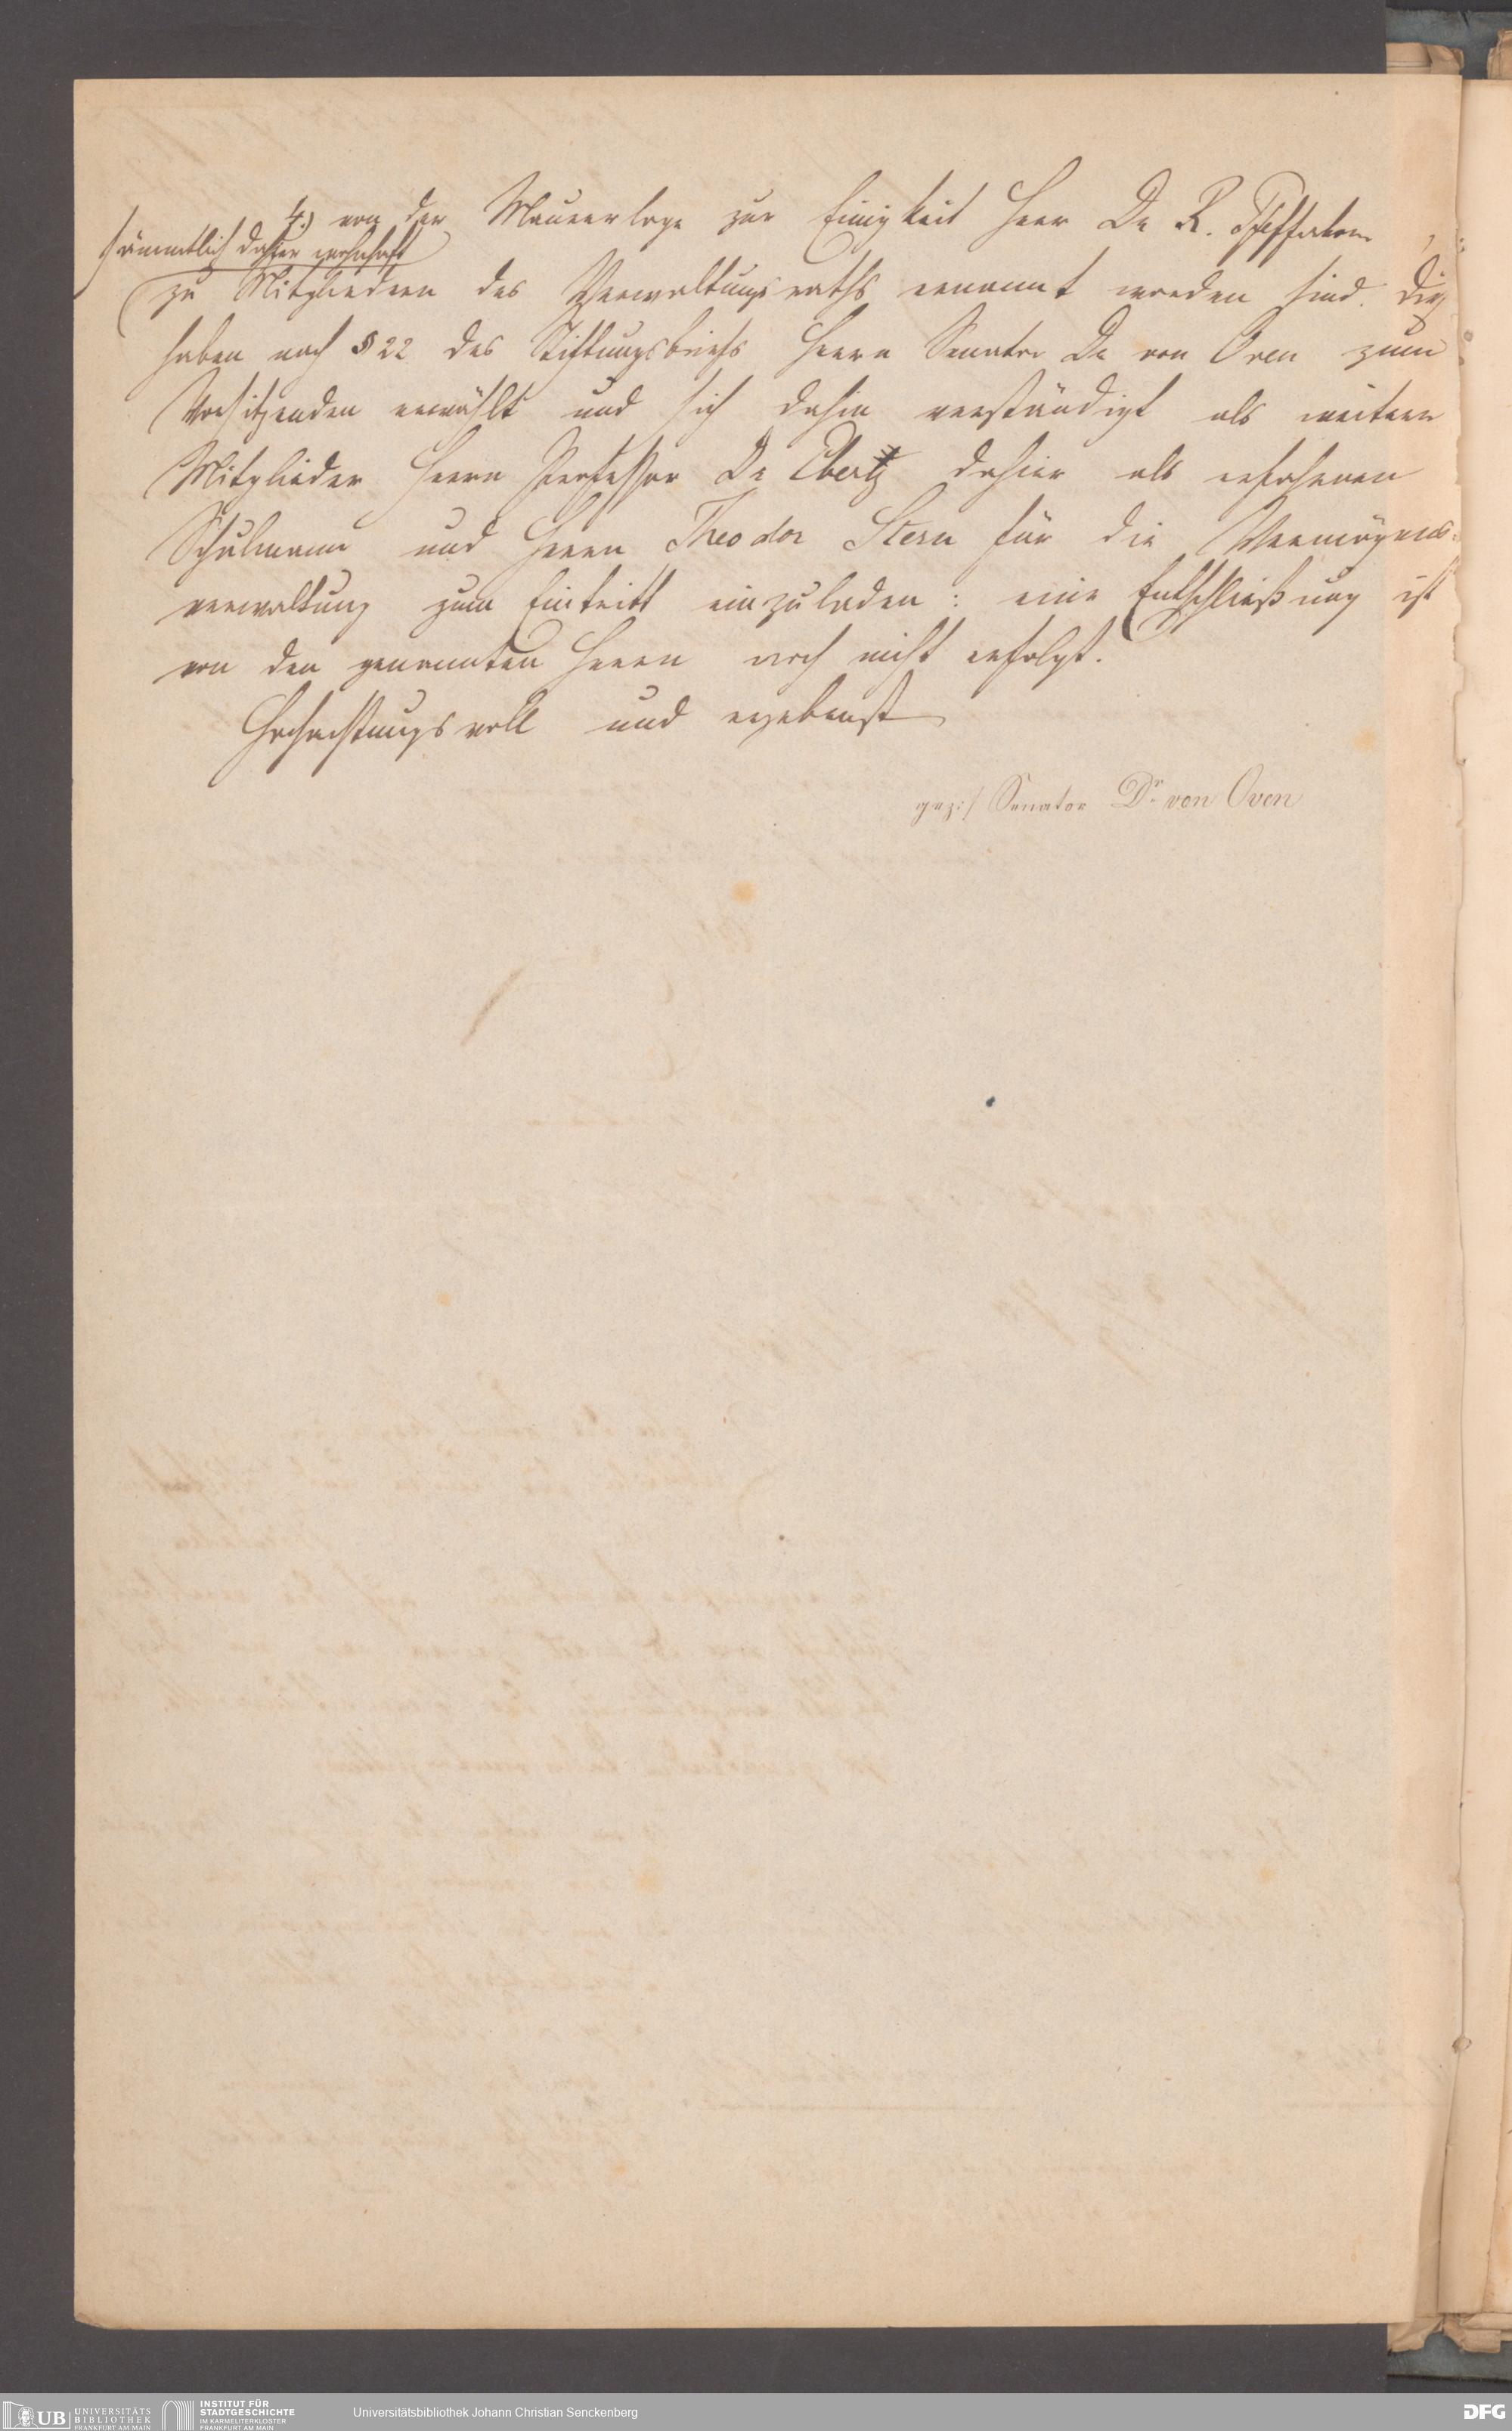 4.) von der Maurerloge zur Einigkeit Herr Dr R.
sämmtlich dahier wohnhaft
zu Mitgliedern des Verwaltungsraths ernannt worden sind. Die
haben nach § 22 des Stiftungsbriefs Herrn Senator Dr von Oven zum
Vorsitzenden erwählt und sich dahin verständigt als weitere
Mitglieder Herrn Professor Dr Ebertz dahier als erfahrenen
Schulmann und Herrn Theodor Stern für die Vermögens-
verwaltung zum Eintritt einzuladen: eine Entschließung ist
von den genannten Herrn noch nicht erfolgt.
Hochachtungsvoll und ergebenst
gez:/ Senator Dr. von Oven
UB UNIVERSITÄTS BIBLIOTHEK FRANKFURT AM MAIN
INSTITUT FÜR STADTGESCHICHTE IM KARMELITERKLOSTER FRANKFURT AM MAIN
Universitätsbibliothek Johann Christian Senckenberg
DFG